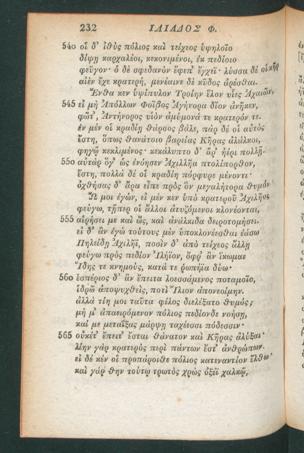 232 ΙΛΙΑΔΟΣ Φ.
540 οἱ δ' ἰθὺς πόλιος καὶ τείχεος ὑψηλοῖο
δίψῃ καρχαλέοι, κεκονιμένοι, ἐκ πεδίοιο
φεῦγον· ὁ δὲ σφεδανὸν ἔφεπ' ἔγχεϊ· λύσσα δέ οἱ κῆρ
αἰὲν ἔχε κρατερή, μενέαινε δὲ κῦδος ἀρέσθαι.
Ἔνθα κεν ὑψίπυλον Τροίην ἕλον υἷες Ἀχαιῶν,
545 εἰ μὴ Ἀπόλλων Φοῖβος Ἀγήνορα δῖον ἀνῆκεν,
φῶτ', Ἀντήνορος υἱὸν ἀμύμονά τε κρατερόν τε.
ἐν μέν οἱ κραδίῃ θάρσος βάλε, πὰρ δέ οἱ αὐτὸς
ἔστη, ὅπως θανάτοιο βαρείας Κῆρας ἀλάλκοι,
φηγῷ κεκλιμένος· κεκάλυπτο δ' ἄρ' ἠέρι πολλῇ.
550 αὐτὰρ ὅγ' ὡς ἐνόησεν Ἀχιλλῆα πτολίπορθον,
ἔστη, πολλὰ δέ οἱ κραδίη πόρφυρε μένοντι·
ὀχθήσας δ' ἄρα εἶπε πρὸς ὃν μεγαλήτορα θυμόν·
Ὤ μοι ἐγών, εἰ μέν κεν ὑπὸ κρατεροῦ Ἀχιλῆος
φεύγω, τῇπερ οἱ ἄλλοι ἀτυζόμενοι κλονέονται,
555 αἱρήσει με καὶ ὥς, καὶ ἀνάλκιδα δειροτομήσει.
εἰ δ' ἂν ἐγὼ τούτους μὲν ὑποκλονέεσθαι ἐάσω
Πηλείδῃ Ἀχιλῆϊ, ποσὶν δ' ἀπὸ τείχεος ἄλλῃ
φεύγω πρὸς πεδίον Ἰλήϊον, ὄφρ' ἂν ἵκωμαι
Ἴδης τε κνημούς, κατά τε ῥωπήϊα δύω·
560 ἑσπέριος δ' ἂν ἔπειτα λοεσσάμενος ποταμοῖο,
ἱδρῶ ἀποψυχθείς, ποτὶ Ἴλιον ἀπονεοίμην.
ἀλλὰ τίη μοι ταῦτα φίλος διελέξατο θυμός;
μή μ' ἀπαειρόμενον πόλιος πεδίονδε νοήσῃ,
καί με μεταΐξας μάρψῃ ταχέεσσι πόδεσσιν·
565 οὐκέτ' ἔπειτ' ἔσται θάνατον καὶ Κῆρας ἀλύξαι·
λίην γὰρ κρατερὸς περὶ πάντων ἔστ' ἀνθρώπων.
εἰ δέ κέν οἱ προπάροιθε πόλιος κατεναντίον ἔλθω·
καὶ γάρ θην τούτῳ τρωτὸς χρὼς ὀξέϊ χαλκῷ,